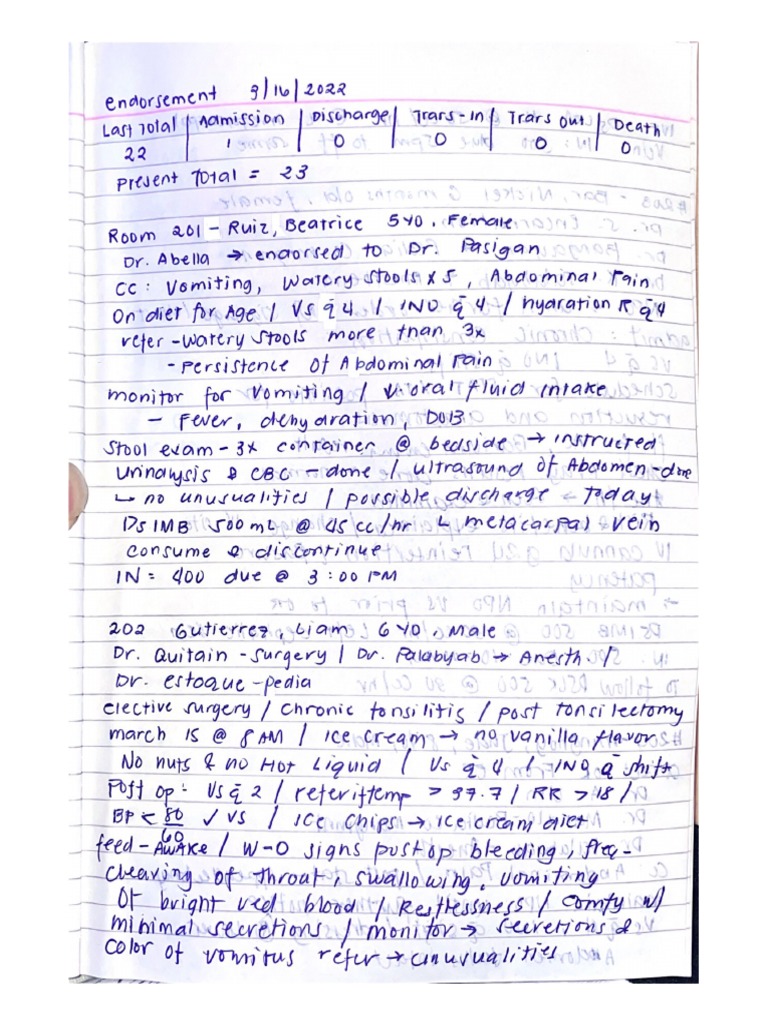 endorsement 3/16/2022
Last Total | Admission | Discharge | Trars-In | Trars out | Death
22 | 1 | 0 | 0 | 0 | 0
Present Total = 23
Room 201 - Ruiz, Beatrice 5 YO, Female
Dr. Abella → endorsed to Dr. Pasigan
CC: Vomiting, Watery Stools x 5, Abdominal Pain
On diet for Age / VS q̄ 4 / INO q̄ 4 / hydration R q̄4
refer - Watery Stools more than 3x
- Persistence of Abdominal Pain
monitor for Vomiting / ↓ oral fluid intake
- Fever, dehydration, DOB
Stool exam - 3x container @ bedside → instructed
Urinalysis & CBC - done / ultrasound of Abdomen - done
↳ no unusualities / possible discharge → Today
D5 IMB 500 mL @ 45 cc/hr ↳ metacarpal vein
consume & discontinue
IN = 400 due @ 3:00 PM
202 Gutierrez, Liam 6 YO, Male
Dr. Quitain - Surgery / Dr. Palabyab → Anesth. /
Dr. Estoque - pedia
elective surgery / chronic tonsilitis / post tonsilectomy
march 15 @ 8 AM / Ice cream → no vanilla flavor
No nuts & no Hot Liquid / Vs q̄ 4 / INO q̄ shift
Post op: Vs q̄ 2 / refer if temp > 37.7 / RR > 18 /
BP < 80/60 ✓ VS / ICE Chips → ice cream diet
feed - AWAKE / W-O signs post op bleeding, freq-
cleaving of throat, swallowing, vomiting
of bright red blood / Restlessness / comfy w/
minimal secretions / monitor → secretions &
color of vomitus refer → unusualities